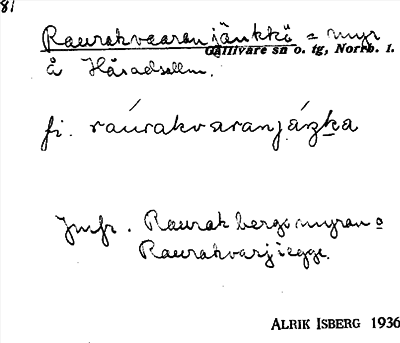 81
Raurakvaaranjänkkä = myr
Gällivare sn o. tg, Norrb. l.
å Håradsallm.
fi. raúrakvaranjáŋka
Jmfr. Raurakbergsmyran o
Raurakvarjiegge.
ALRIK ISBERG 1936